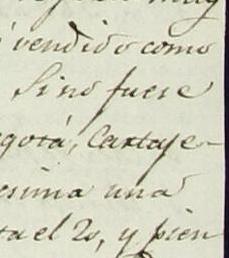 vendido como
Si no fuese
gotá, Cartaje-
esima una
ta el 20, y pien